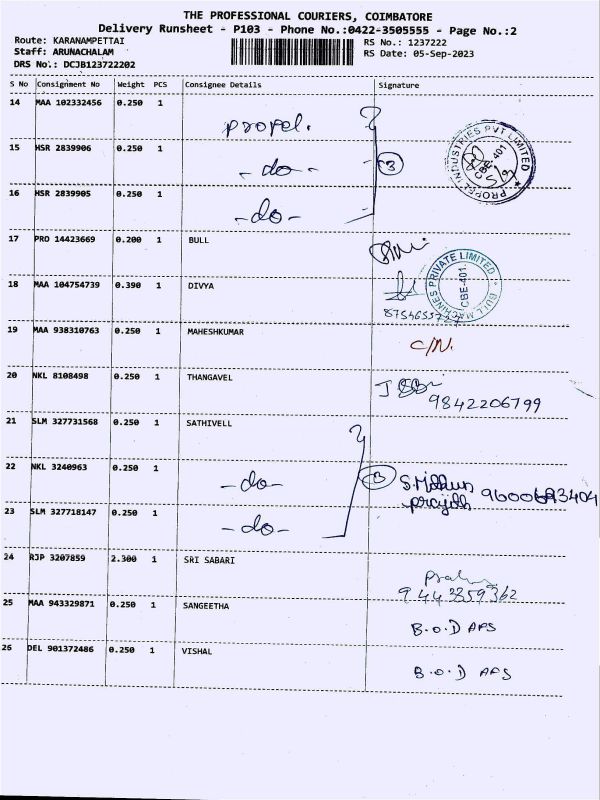 THE PROFESSIONAL COURIERS, COIMBATORE
Delivery Runsheet - P103 - Phone No.:0422-3505555 - Page No.:2
Route: KARANAMPETTAI RS No.: 1237222
Staff: ARUNACHALAM RS Date: 05-Sep-2023
DRS No.: DCJB123722202
S No Consignment No Weight PCS Consignee Details Signature
14 MAA 102332456 0.250 1 propel.
15 HSR 2839906 0.250 1 -do- 3
PROPEL INDUSTRIES PVT LIMITED
CBE-401
16 HSR 2839905 0.250 1 -do-
17 PRO 14423669 0.200 1 BULL
18 MAA 104754739 0.390 1 DIVYA
BULL MACHINES PRIVATE LIMITED
CBE-401
19 MAA 938310763 0.250 1 MAHESHKUMAR C/N.
20 NKL 8108498 0.250 1 THANGAVEL
9842206799
21 SLM 327731568 0.250 1 SATHIVELL
22 NKL 3240963 0.250 1 -do- 3
23 SLM 327718147 0.250 1 -do-
24 RJP 3207859 2.300 1 SRI SABARI
9443359362
25 MAA 943329871 0.250 1 SANGEETHA B.O.D APS
26 DEL 901372486 0.250 1 VISHAL B.O.D APS